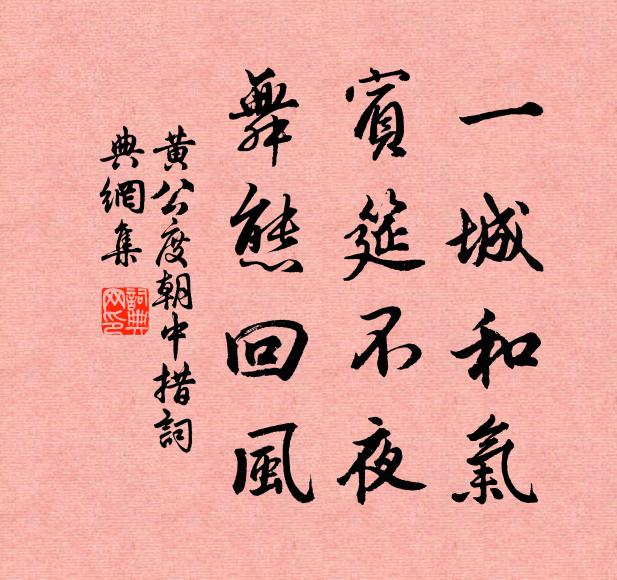 一城和氣
賓筵不夜
舞態回風
黃公度朝中措詞
典網集
詞典網印